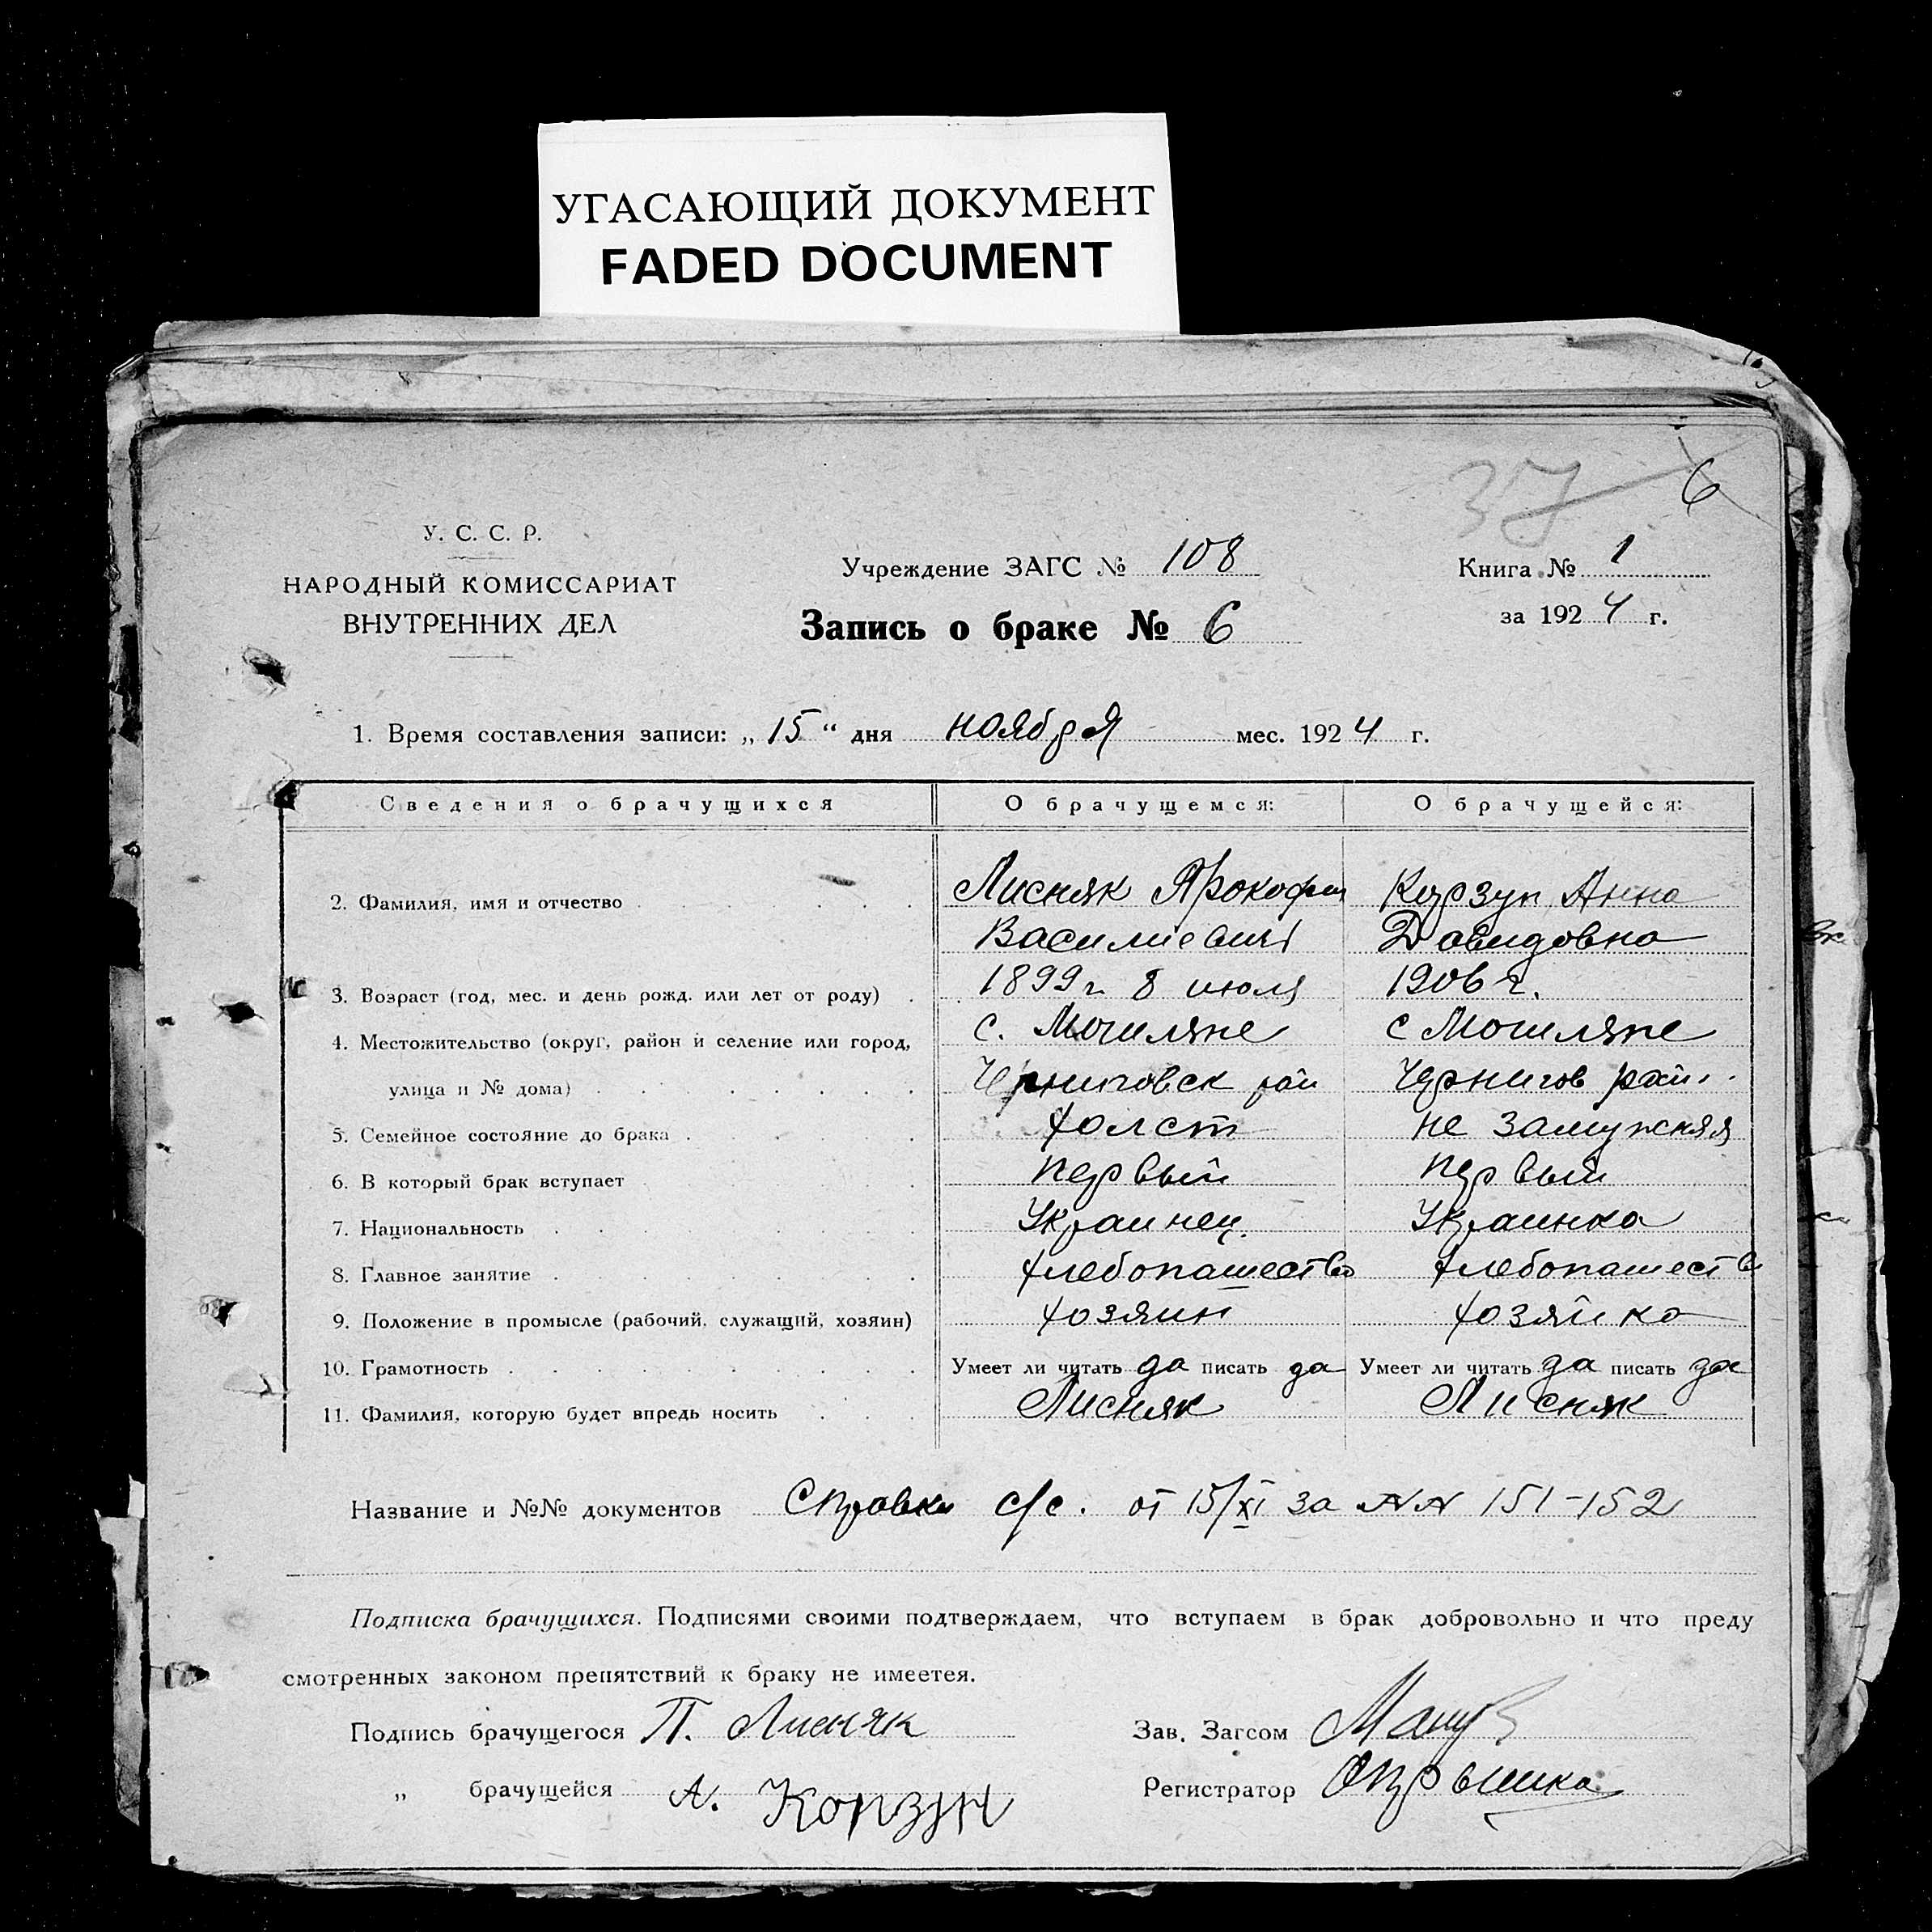 УГАСАЮЩИЙ ДОКУМЕНТ
FADED DOCUMENT
37
6
У. С. С. Р.
НАРОДНЫЙ КОМИССАРИАТ
ВНУТРЕННИХ ДЕЛ
Учреждение ЗАГС № 108
Запись о браке № 6
Книга № 1
за 1924 г.
1. Время составления записи: „ 15 “ дня ноября мес. 1924 г.
Сведения о брачущихся О брачущемся: О брачущейся:
2. Фамилия, имя и отчество Лисняк Прокофий Корзун Анна
Василиевич Давидовна
3. Возраст (год, мес. и день рожд. или лет от роду) 1899 г 8 июля 1906 г.
4. Местожительство (округ, район и селение или город, с. Могиляне с Могиляне
улица и № дома) Черниговск рай Чернигов рай.
5. Семейное состояние до брака холст не замужняя
6. В который брак вступает первый первый
7. Национальность Украинец Украинка
8. Главное занятие хлебопашество хлебопашеств
9. Положение в промысле (рабочий, служащий, хозяин) хозяин хозяйка
10. Грамотность Умеет ли читать да писать да Умеет ли читать да писать да
11. Фамилия, которую будет впредь носить Лисняк Лисняк
Название и №№ документов Справки с/с. от 15/XI за №№ 151-152
Подписка брачущихся. Подписями своими подтверждаем, что вступаем в брак добровольно и что преду
смотренных законом препятствий к браку не имеетея.
Подпись брачущегося П. Лисняк Зав. Загсом
„ брачущейся А. Корзун Регистратор